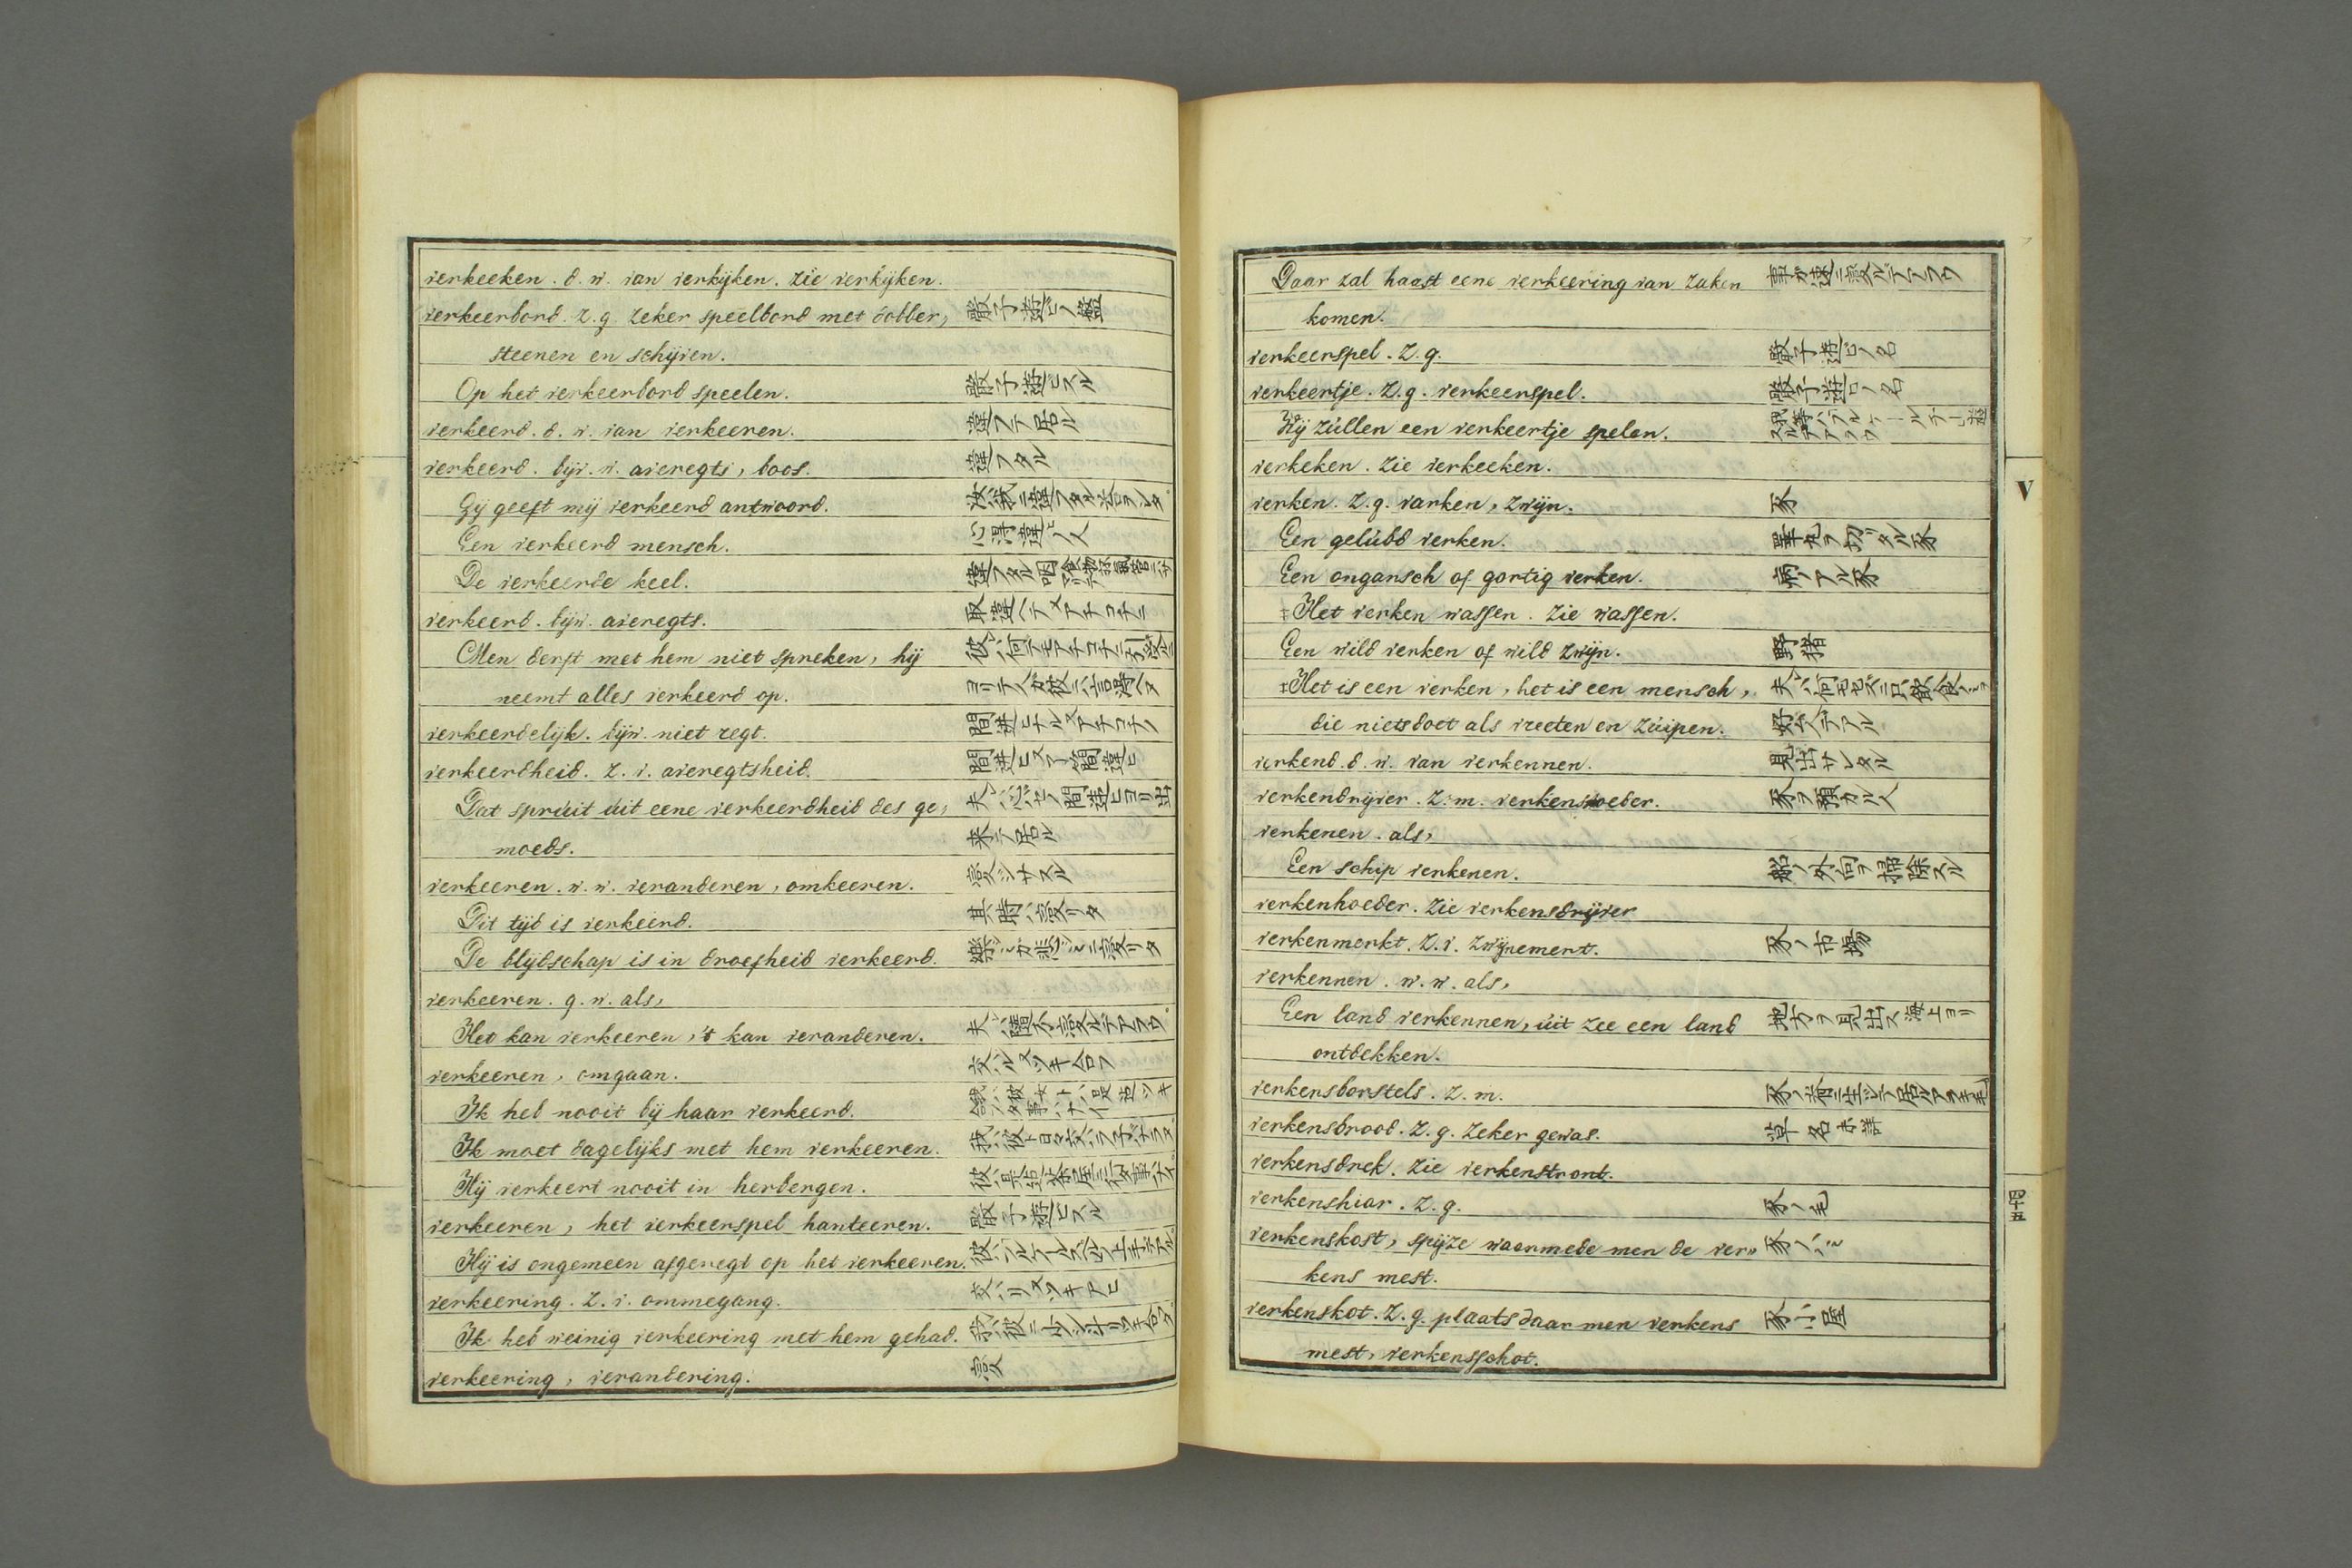 verkeeken. d. w. van verkijken. zie verkijken.
verkeerbord. z. g. zeker speelbord met dobber, 骰子遊ビノ盤
steenen en schijven.
Op het verkeerbord speelen. 骰子遊ビスル
verkeerd. d. w. van verkeeren. 違フテ居ル
verkeerd. bijv. w. averegts, boos. 違フタル
Gij geeft mij verkeerd antwoord. 汝我ニ違フタル答ヲシタ
Een verkeerd mensch. 心得違ノ人
De verkeerde keel. 違フタル咽
verkeerd. bijw. averegts. 取違ヘテ又アチコチニ
Men derft met hem niet spreken, hij
neemt alles verkeerd op.
verkeerdelijk. bijw. niet regt. 間違ヒナル又アチコチノ
verkeerdheid. z. v. averegtsheid. 間違ヒ
Dat spruit uit eene verkeerdheid des ge, 間違ヒヨリ出
moeds. 来テ居ル
verkeeren. w. w. veranderen, omkeeren. 変ジサスル
Dit tijd is verkeerd. 其時ハ変リタ
De blijdschap is in droefheid verkeerd.
verkeeren. g. w. als,
Het kan verkeeren, 't kan veranderen.
verkeeren, omgaan. 交ハル又ツキ合フ
Ik heb nooit bij haar verkeerd.
Ik moet dagelijks met hem verkeeren.
Hij verkeert nooit in herbergen.
verkeeren, het verkeerspel hanteeren. 骰子遊ヒスル
Hij is ongemeen afgeregt op het verkeeren.
verkeering. z. v. ommegang. 交ハリ又ツキアヒ
Ik heb weinig verkeering met hem gehad.
verkeering, verandering. 変
Daar zal haast eene verkeering van zaken 事ガ速ニ変ルデアラウ
komen.
verkeerspel. z. g. 骰子遊ビノ名
verkeertje. z. g. verkeerspel. 骰子遊ビノ名
Wij zullen een verkeertje spelen.
verkeken. zie verkeeken.
verken. z. g. varken, zwijn. 豕
Een gelubd verken. 睾丸ヲ切リタル豕
Een ongansch of gortig verken. 病ノアル豕
‡Het verken wassen. zie wassen.
Een wild verken of wild zwijn. 野猪
‡Het is een verken, het is een mensch,
die niets doet als vreeten en zuipen.
verkend. d. w. van verkennen. 見出サレタル
verkendrijver. z. m. verkenshoeder. 豕ヲ預カル人
verkenen. als,
Een schip verkenen. 船ノ外向ヲ掃除スル
verkenhoeder. zie verkensdrijver
verkenmerkt. z. v. zwijnemert. 豕ノ市場
verkennen. w. w. als,
Een land verkennen, uit zee een land 地方ヲ見出ス海上ヨリ
ontdekken.
verkensborstels. z. m.
verkensbrood. z. g. zeker gewas. 草名未詳
verkensdrek. zie verkenstront.
verkenshiar. z. g. 豕ノ毛
verkenskost, spijze waarmede men de ver»
kens mest.
verkenskot. z. g. plaats daar men verkens 豕小屋
mest, verkensschot.
V
四十五